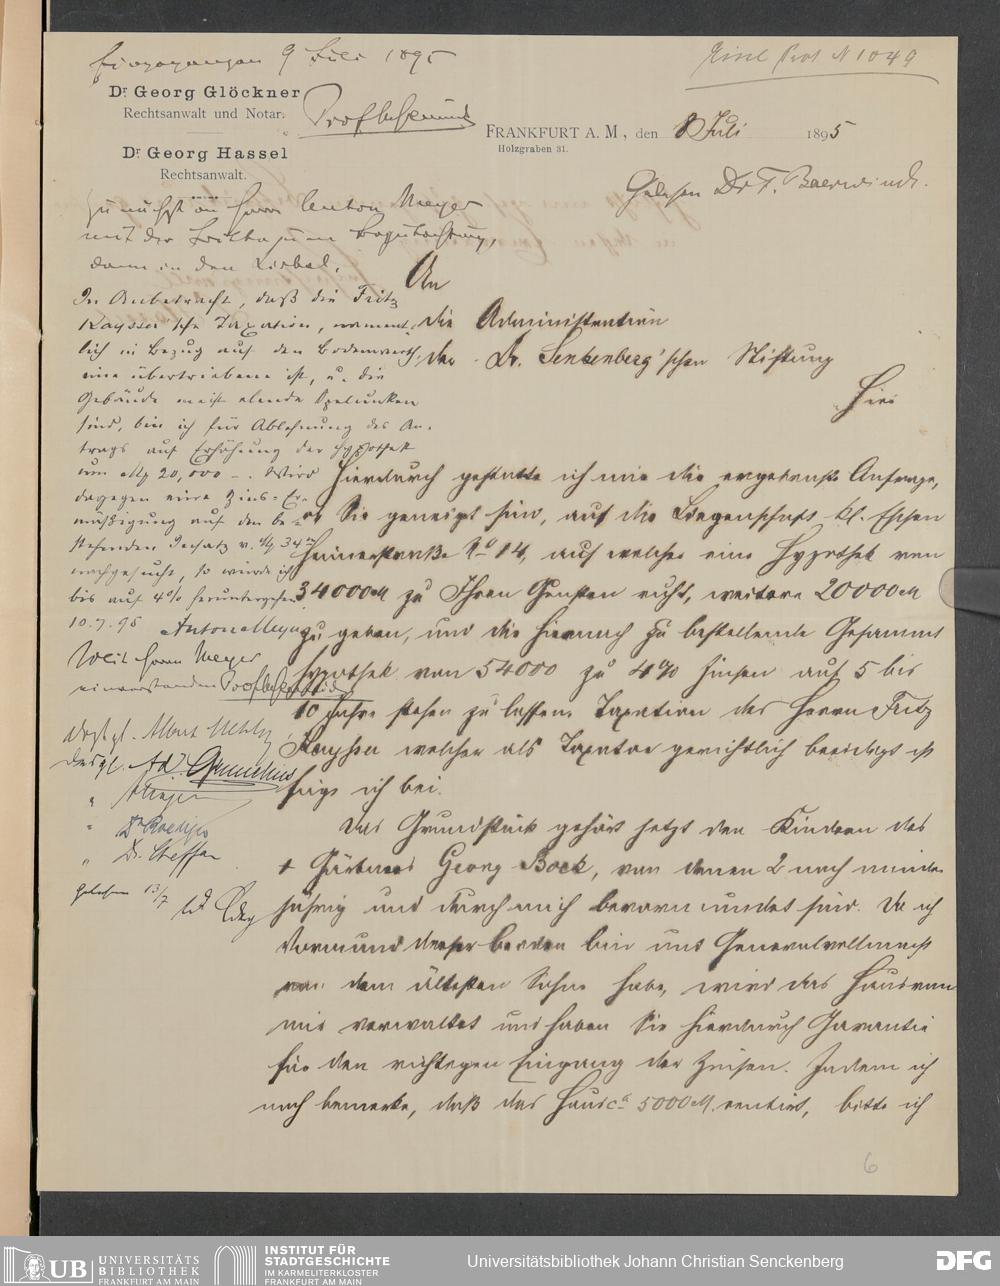 Eingegangen 9 Juli 1895
Einl Prot N 1049
Dr Georg Glöckner
Rechtsanwalt und Notar.
FRANKFURT A. M, den 8 Juli 1895
Holzgraben 31.
Dr Georg Hassel
Rechtsanwalt.
Gelesen Dr F. Baerwindt.
zunächst an Herrn Anton Meyer
mit der Bitte um Begutachtung,
dann in den Zirkel.
In Anbetracht, daß die Fritz
Kaysser'sche Taxation, nament-
lich in Bezug auf den Bodenwerth,
eine übertriebene ist, u. die
Gebäude meist elende Spelunken
sind, bin ich für Ablehnung des An-
trags auf Erhöhung der Hypothek
um M 20,000 –. Wird
dagegen eine Zins-Er-
mäßigung auf den be-
stehenden Insatz v. M 34m
nachgesucht, so würde ich
bis auf 4% heruntergehen
10.7.95 Anton Meyer
Mit Herrn Meyer
einverstanden
desgl. Albert Metzler
desgl. Ad. Grunelius
"
" Dr Roediger
" Dr. Steffan
gelesen 13/7
An
die Administration
der Dr. Senkenberg'schen Stiftung
Hier
Hierdurch gestatte ich mir die ergebenste Anfrage,
ob Sie geneigt sind, auf die Liegenschaft kl. Eschen
heimerstraße No 14, auf welcher eine Hypothek von
34000 M zu Ihren Gunsten ruht, weitere 20000 M
zu geben, und die hiernach zu bestellende Gesammt
hypothek von 54000 zu 4% Zinsen auf 5 bis
10 Jahre stehen zu lassen. Taxation des Herrn Fritz
Kaysser welcher als Taxator gerichtlich beeidigt ist
füge ich bei.
Das Grundstück gehört jetzt den Kindern des
† Gärtners Georg Bock, von denen 2 noch minder
jährig und durch mich bevormundet sind. Da ich
Vormund dieser beiden bin und Generalvollmacht
von dem ältesten Sohne habe, wird das Haus von
mir verwaltet und haben Sie hierdurch Garantie
für den richtigen Eingang der Zinsen. Indem ich
noch bemerke, daß das Haus ca 5000 M. rentirt, bitte ich
6
UB UNIVERSITÄTS
BIBLIOTHEK
FRANKFURT AM MAIN
INSTITUT FÜR
STADTGESCHICHTE
IM KARMELITERKLOSTER
FRANKFURT AM MAIN
Universitätsbibliothek Johann Christian Senckenberg
DFG